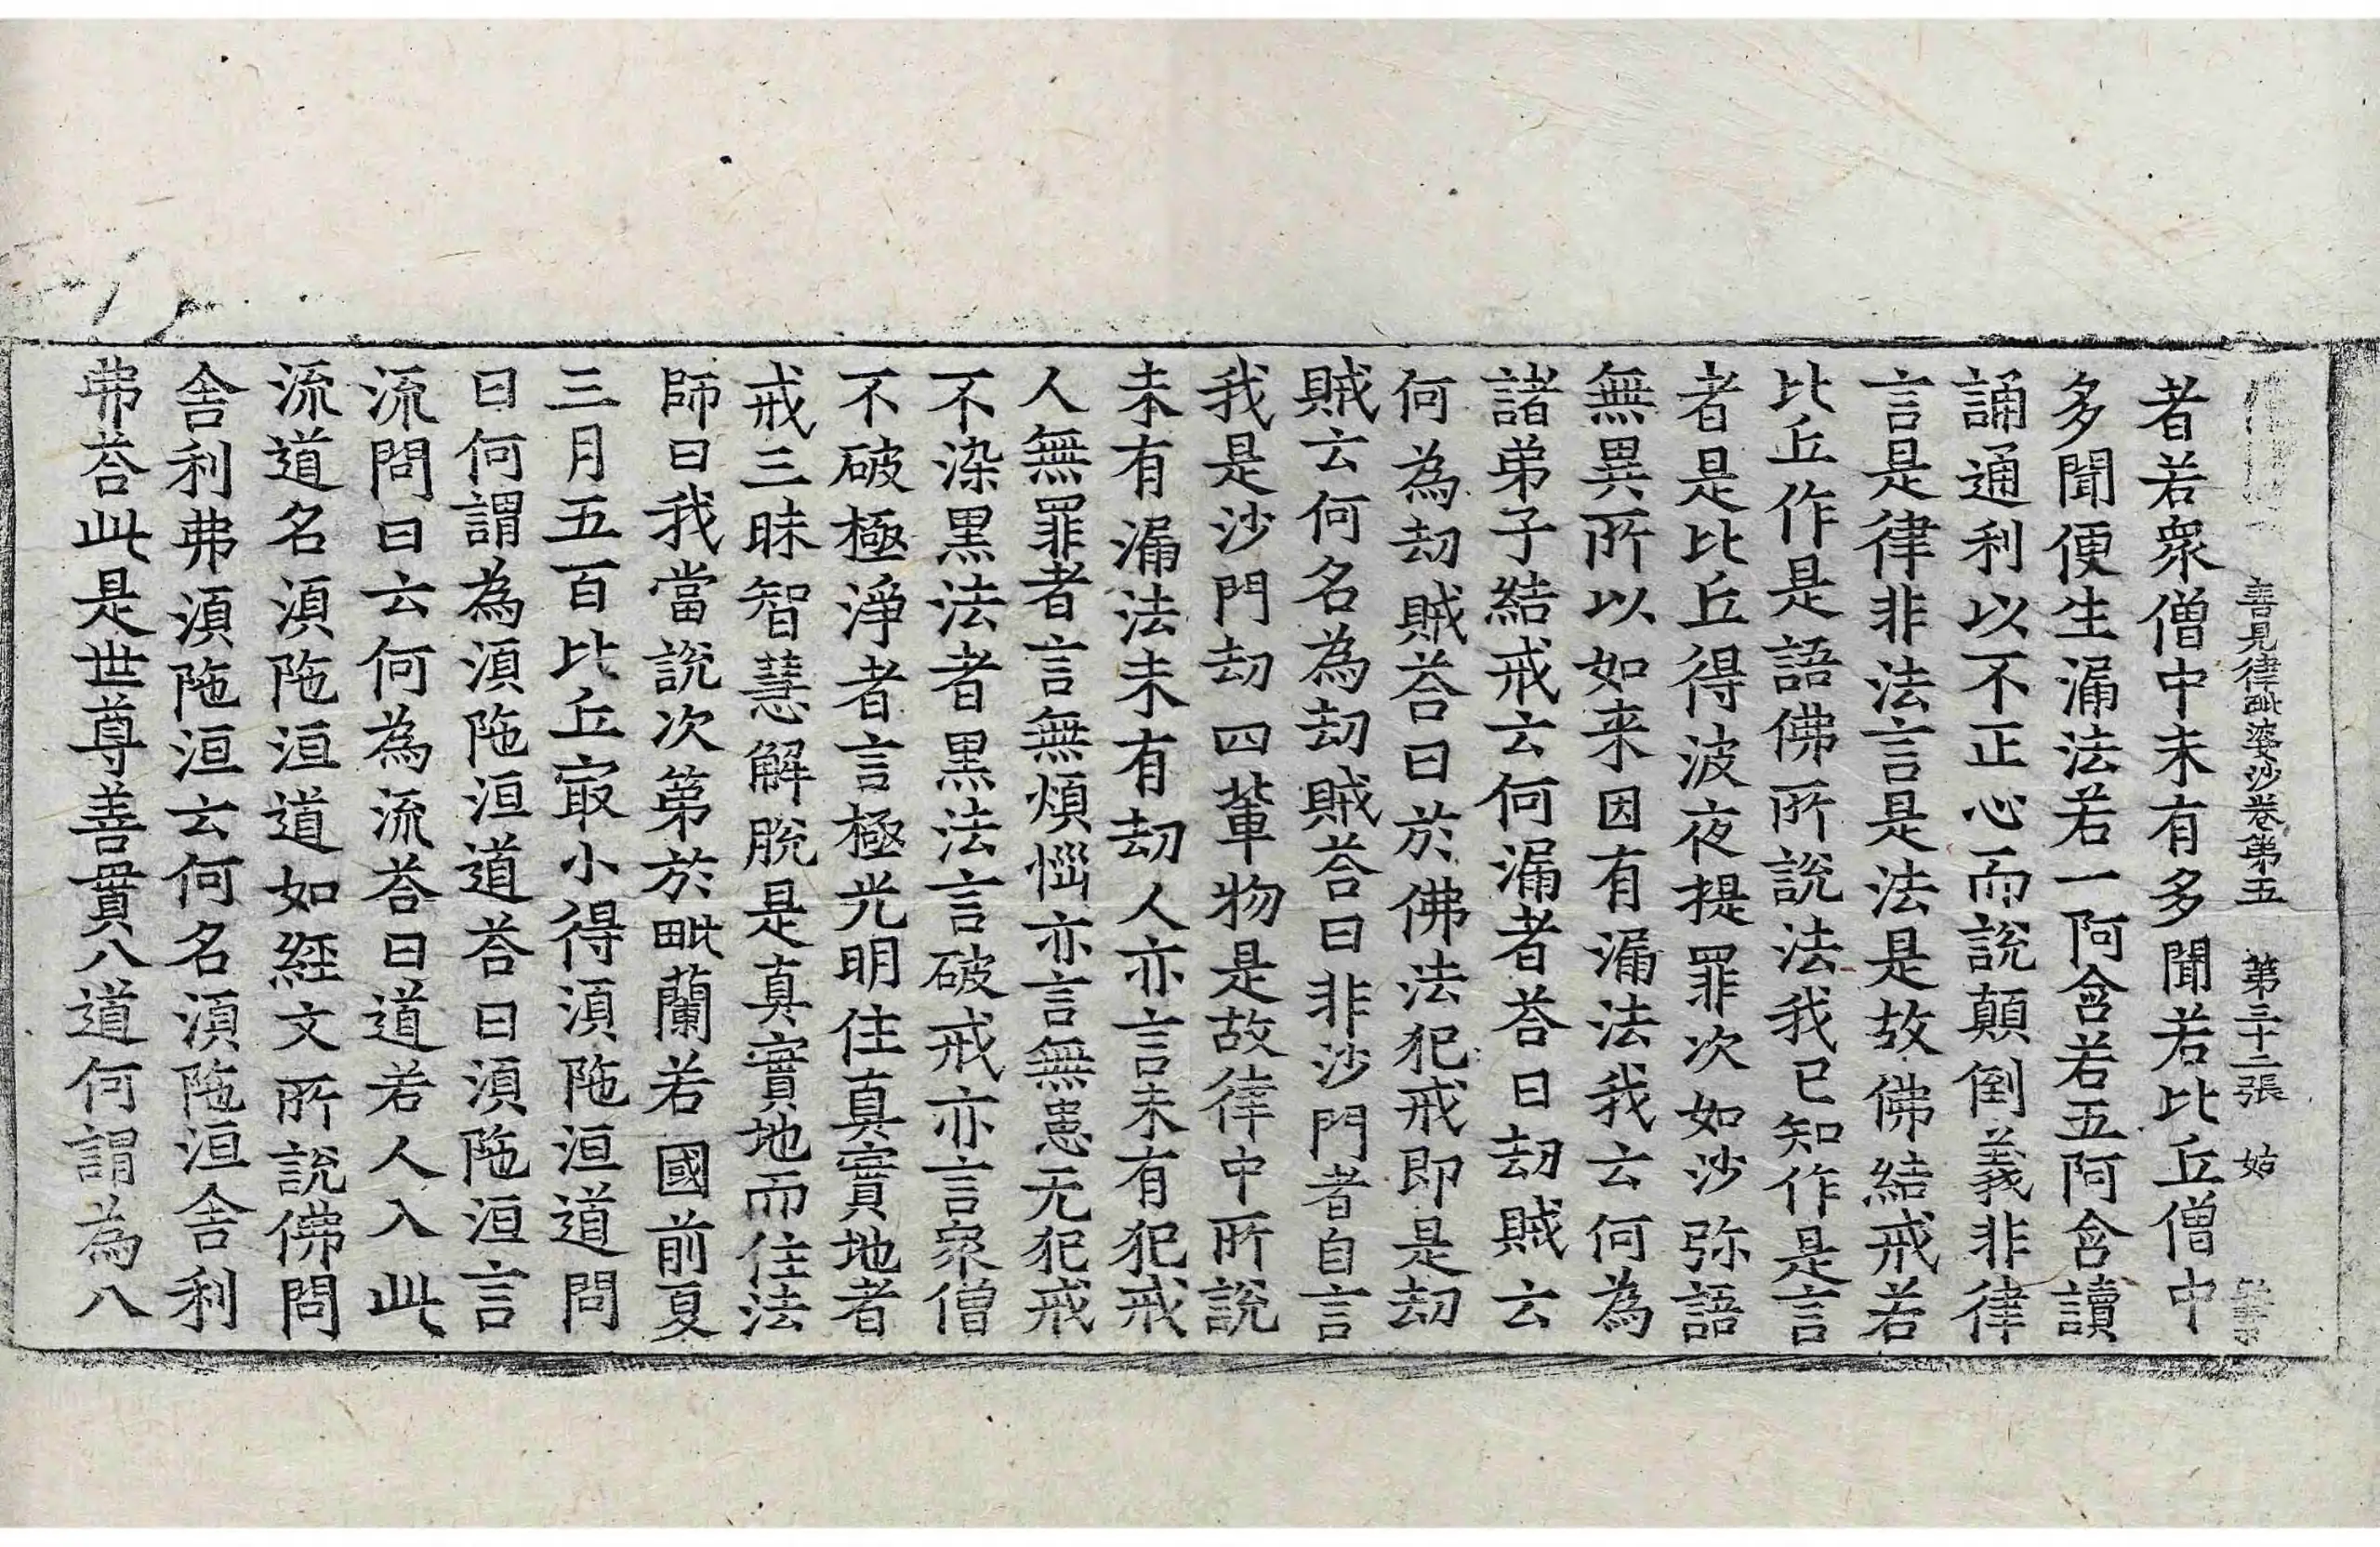 善見律毗婆沙卷第五　第三十二張　姑
者若衆僧中未有多聞若比丘僧中
多聞便生漏法若一阿含若五阿含讀
誦通利以不正心而說顛倒義非律
言是律非法言是法是故佛結戒若
比丘作是語佛所說法我已知作是言
者是比丘得波夜提罪次如沙弥語
無異所以如来因有漏法我云何為
諸弟子結戒云何漏者荅曰刧賊云
何為刧賊荅曰於佛法犯戒即是刧
賊云何名為刧賊荅曰非沙門者自言
我是沙門刧四軰物是故律中所說
未有漏法未有刧人亦言未有犯戒
人無罪者言無煩惱亦言無恚无犯戒
不染黒法者黒法言破戒亦言衆僧
不破極淨者言極光明住真實地者
戒三昧智慧解脫是真實地而住法
師曰我當說次第於毗蘭若國前夏
三月五百比丘冣小得湏陁洹道問
曰何謂為湏陁洹道荅曰湏陁洹言
流問曰云何為流荅曰道若人入此
流道名湏陁洹道如經文所說佛問
舎利弗湏陁洹云何名湏陁洹舎利
弗荅此是世尊善貫八道何謂為八